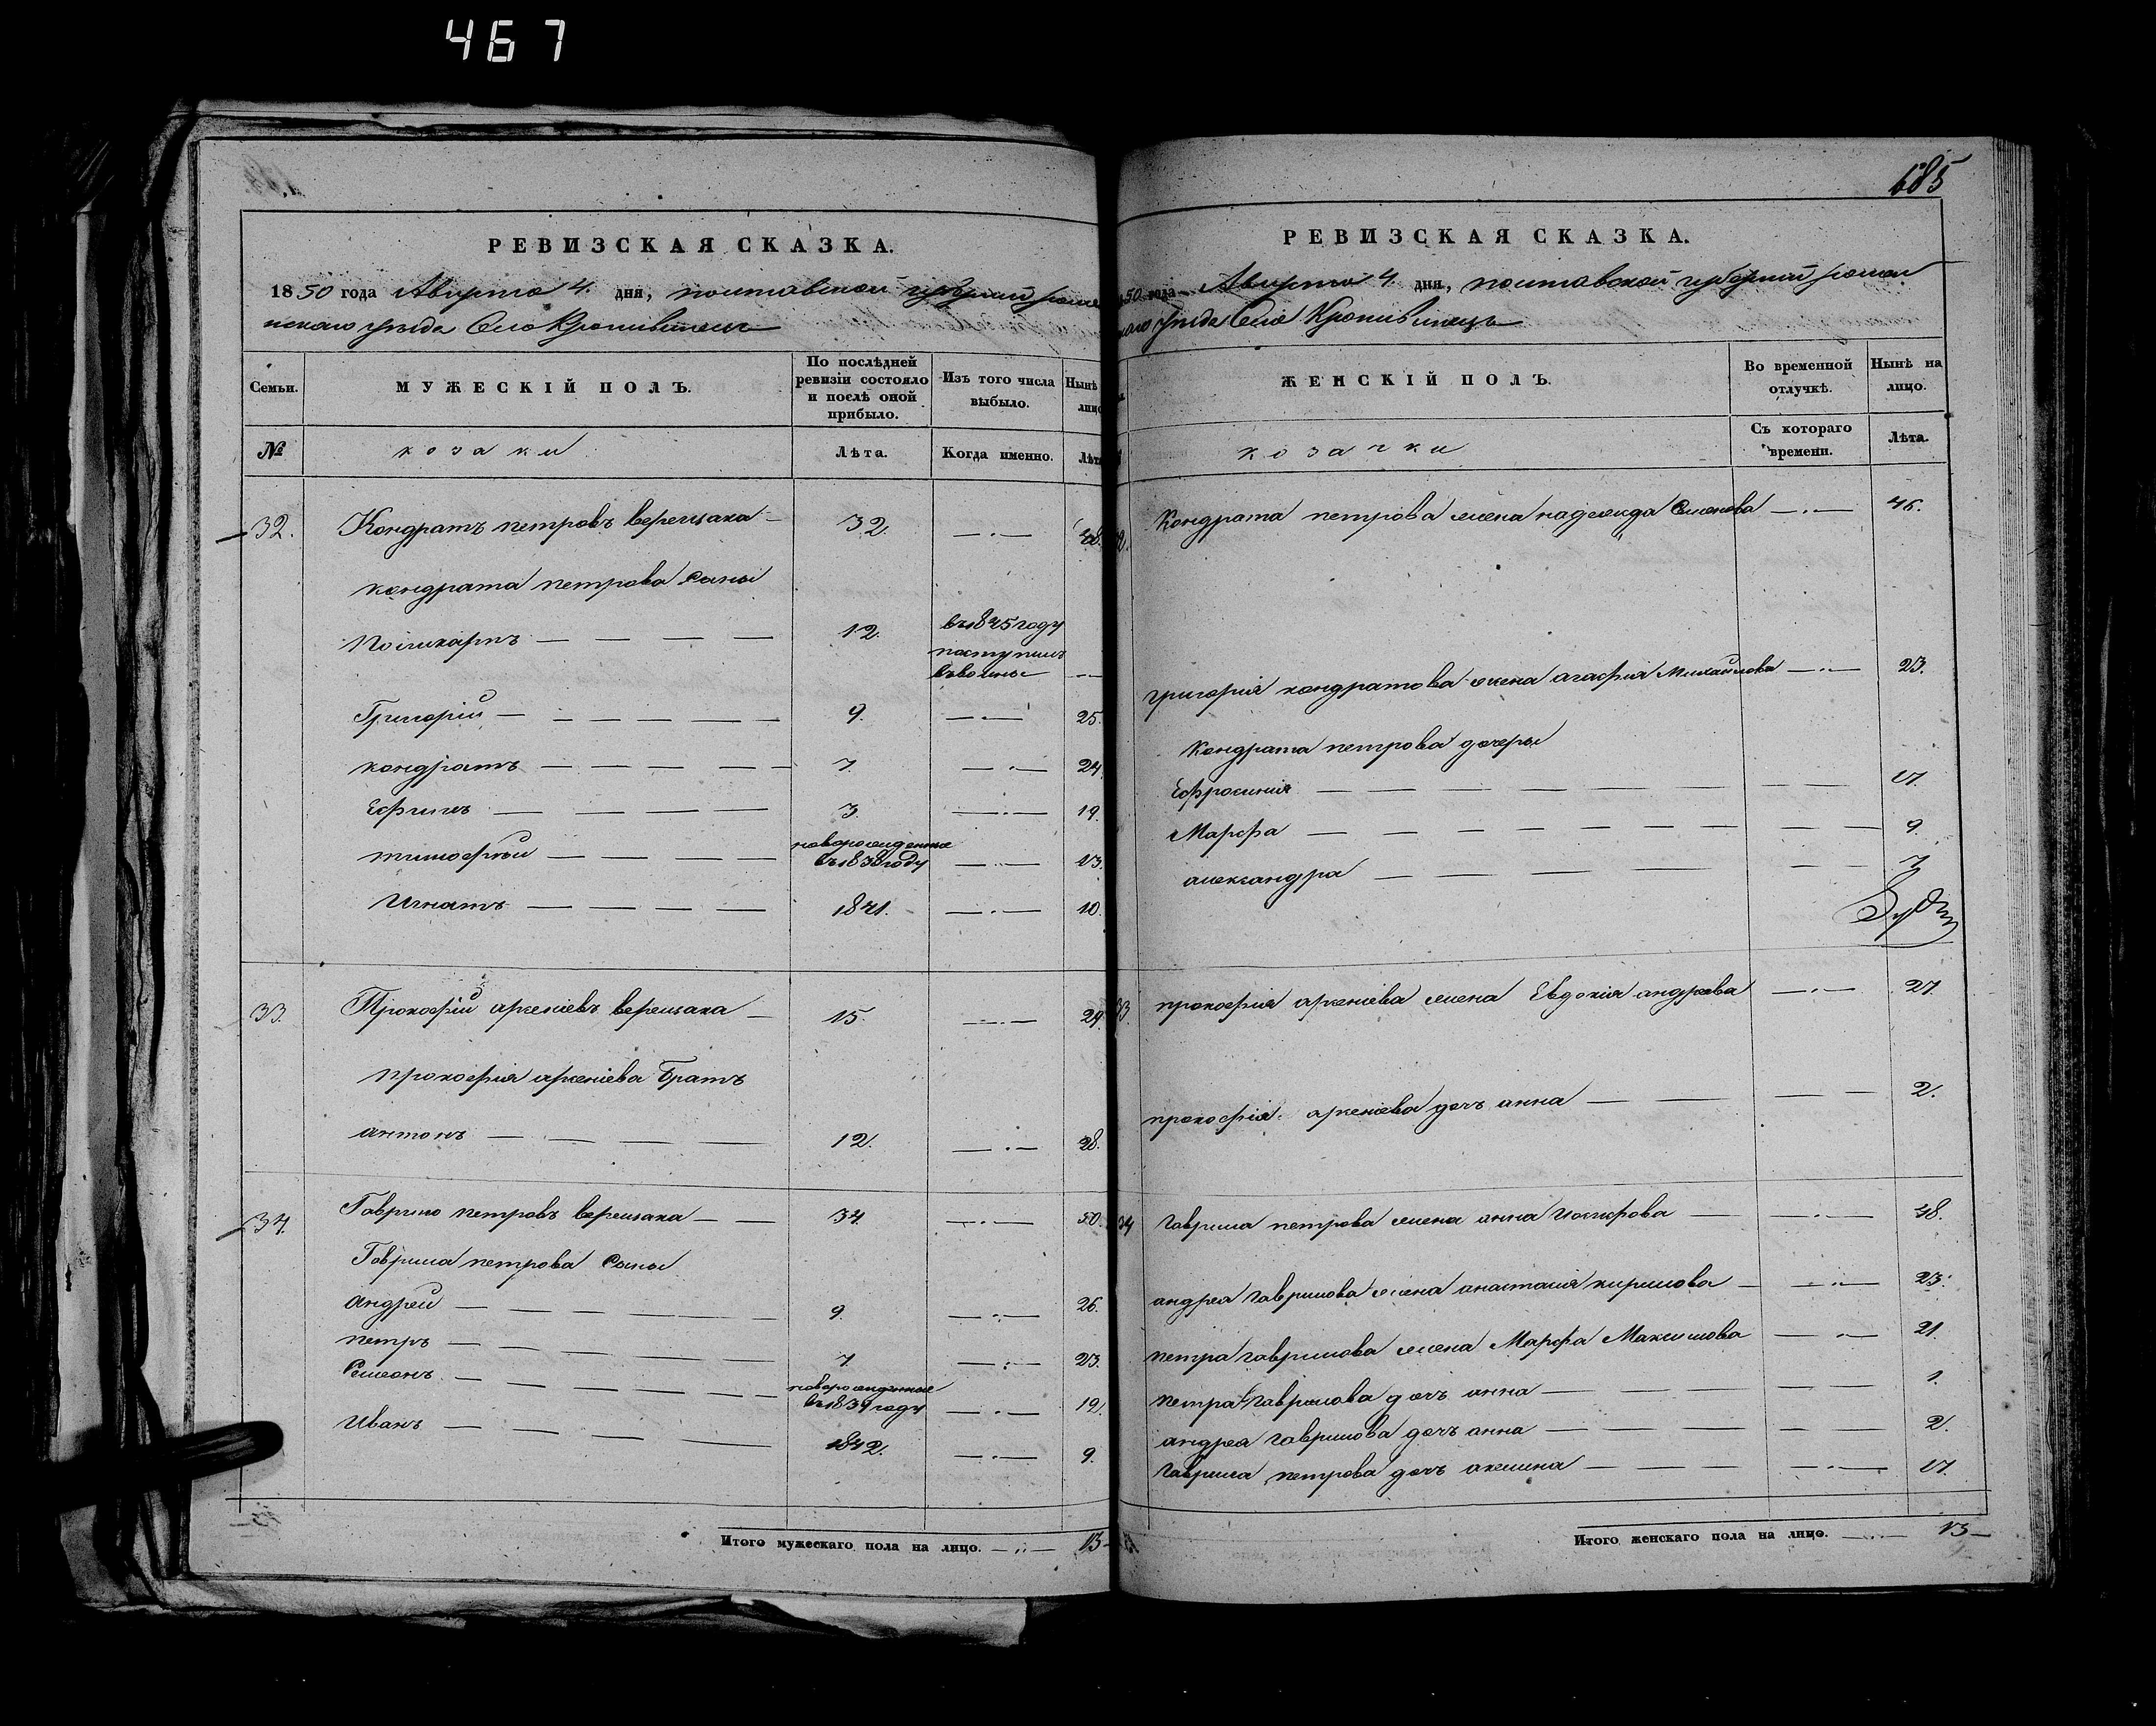 467
685
РЕВИЗСКАЯ СКАЗКА.
1850 года Августа 4. дня, полтавской губерніи ромен
нскаго уѣзда Село Кропивинецъ
Семьи.
МУЖЕСКІЙ ПОЛЪ.
По послѣдней ревизіи состояло и послѣ оной прибыло.
Изъ того числа выбыло.
Нынѣ лицо
№
козаки
Лѣта.
Когда именно.
Лѣта
32. Кондратъ петровъ верещака — 32. —·— 48.
кондрата петрова Сыны
Поликарпъ — — — — 12. въ 1845 году
поступилъ
—
Григорій — — — — 9. —·— 25.
кондратъ — — — — 7. —·— 24.
Ефимъ — — — — 3. —·— 19.
тимофѣй — — — — новорожденные
въ 1838 году —·— 13.
Игнатъ — — — — 1841. —·— 10.
33. Прокофій арсеніевъ верещака — 15. —·— 29.
прокофія арсеніева Братъ
антонъ — — — — 12. —·— 28.
34. Гаврило петровъ верещака — — 34. —·— 50.
Гаврила петрова Сыны
андрей — — — — 9. —·— 26.
петръ — — — — 7. —·— 23.
Симеонъ — — — — новорожденные
въ 1839 году —·— 12.
Иванъ — — — — 1842. —·— 9.
Итого мужескаго пола на лицо. —··— 13
РЕВИЗСКАЯ СКАЗКА.
50 года Августа 4. дня, полтавской губерніи ромен
скаго уѣзда Село Кропивинецъ
ЖЕНСКІЙ ПОЛЪ.
Во временной отлучкѣ.
Нынѣ на лицо.
козачки
Съ котораго времени.
Лѣта.
Кондрата петрова жена надежда Симонова —·— 46.
григорія кондратова жена агафія Михайлова —·— 23.
Кондрата петрова дочери
Ефросинія — — — — — — — 17.
Марфа — — — — — — — 9.
александра — — — — — — 7
33. прокофія арсеніева жена Евдокія андреева —·— 27.
прокофія арсеніева дочь анна — — — — 2.
34 гаврила петрова жена анна Иосифова — —·— 48.
андрея гаврилова жена анастасія кирилова — —·— 23.
петра гаврилова жена Марфа Максимова —·— 21.
петра гаврилова дочь анна — — — — — 1.
андрея гаврилова дочь анна — — — — — 2.
гаврила петрова дочь акилина — — — —·— 17.
Итого женскаго пола на лицо. —··— 13—